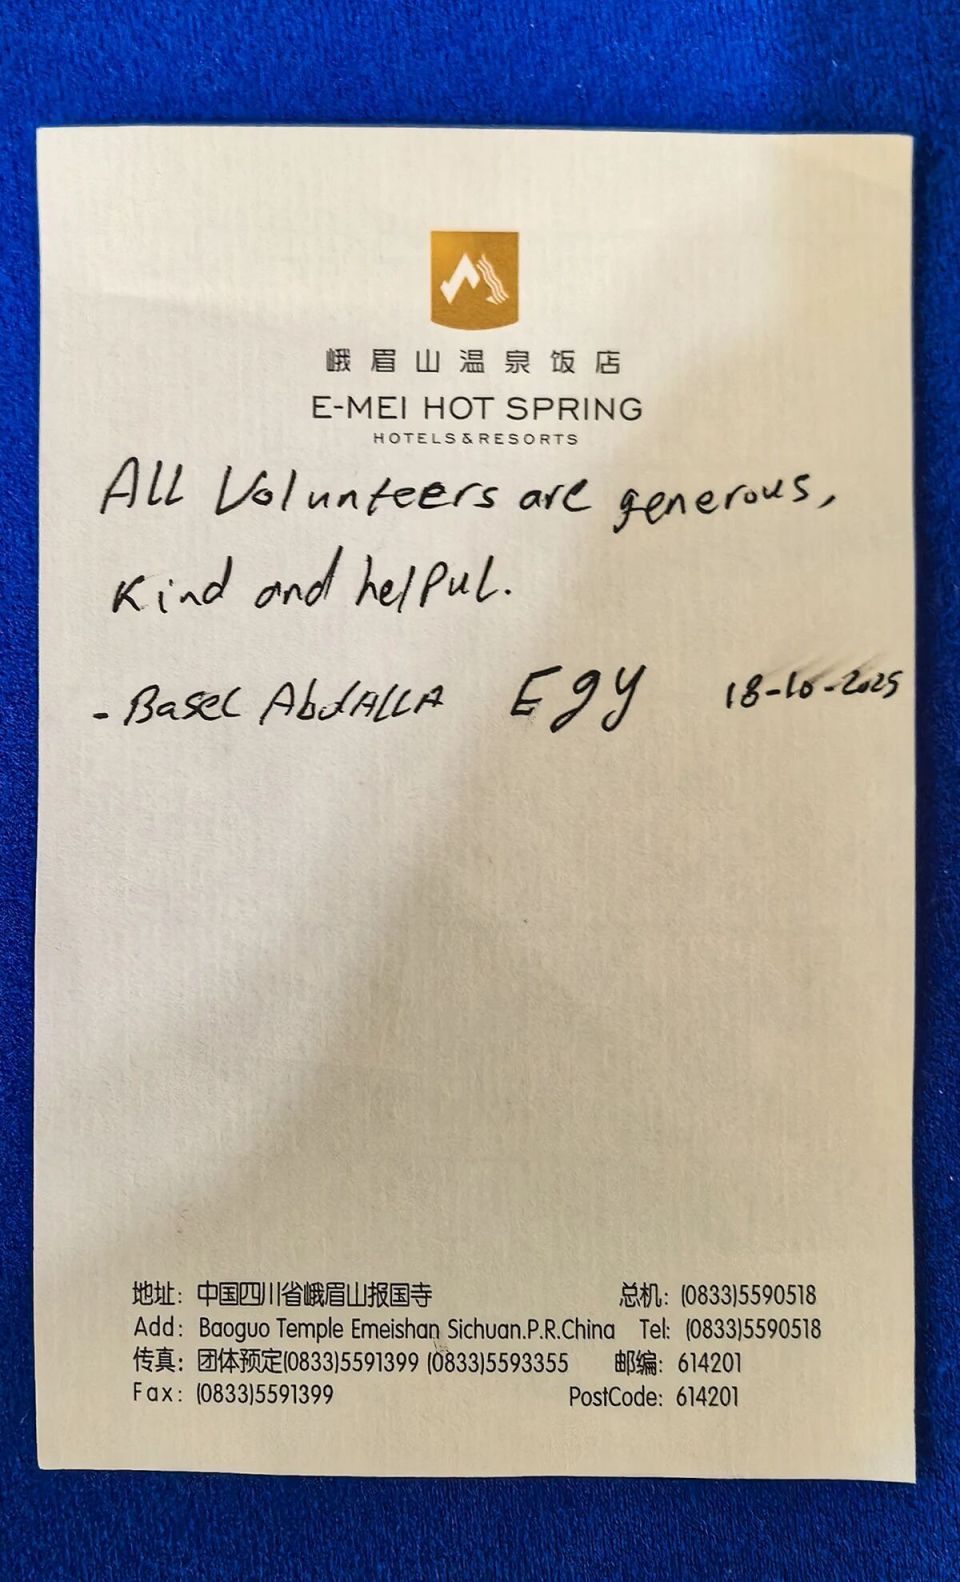 峨眉山温泉饭店
E-MEI HOT SPRING
HOTELS&RESORTS
All Volunteers are generous,
Kind and helpul.
- Basel AbdAllA Egy 18-10-2025
地址: 中国四川省峨眉山报国寺 总机: (0833)5590518
Add: Baoguo Temple Emeishan Sichuan.P.R.China Tel: (0833)5590518
传真: 团体预定(0833)5591399 (0833)5593355 邮编: 614201
Fax: (0833)5591399 PostCode: 614201